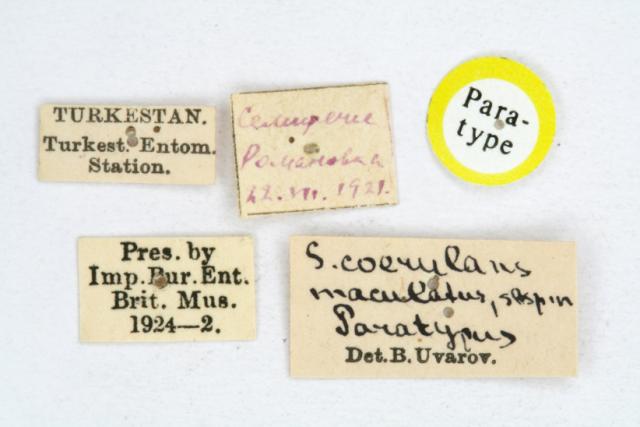 TURKESTAN.
Turkest. Entom.
Station.
Семиречие
Романовка
22. VII. 1921.
Para-
type
Pres. by
Imp.Bur.Ent.
Brit. Mus.
1924—2.
S. coerulans
maculatus, sbsp n
Paratypus
Det. B. Uvarov.